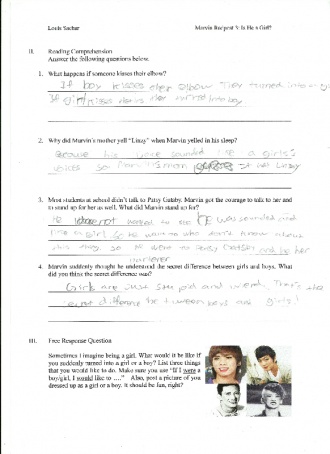 Louis Sachar Marvin Redpost 3: Is He a Girl?
II. Reading Comprehension
Answer the following questions below.
1. What happens if someone kisses their elbow?
If boy kisses her elbow They turned into a
If girl kisses her turned into boy
2. Why did Marvin's mother yell "Linzy" when Marvin yelled in his sleep?
his voice sounded like a girl's
voice so Mom Linzy
3. Most students at school didn't talk to Patsy Gatsby. Marvin got the courage to talk to her and
to stand up for her as well. What did Marvin stand up for?
He not wanted to was sounded
like a girl so He want who don't know about
this so He went to Patsy and be her
4. Marvin suddenly thought he understood the secret difference between girls and boys. What
did you think the secret difference was?
Girls are just stupid and weird, That's the
secret difference between boys and girls!
III. Free Response Question
Sometimes I imagine being a girl. What would it be like if
you suddenly turned into a girl or a boy? List three things
that you would like to do. Make sure you use "If I were a
boy/girl, I would like to ...." Also, post a picture of you
dressed up as a girl or a boy. It should be fun, right?